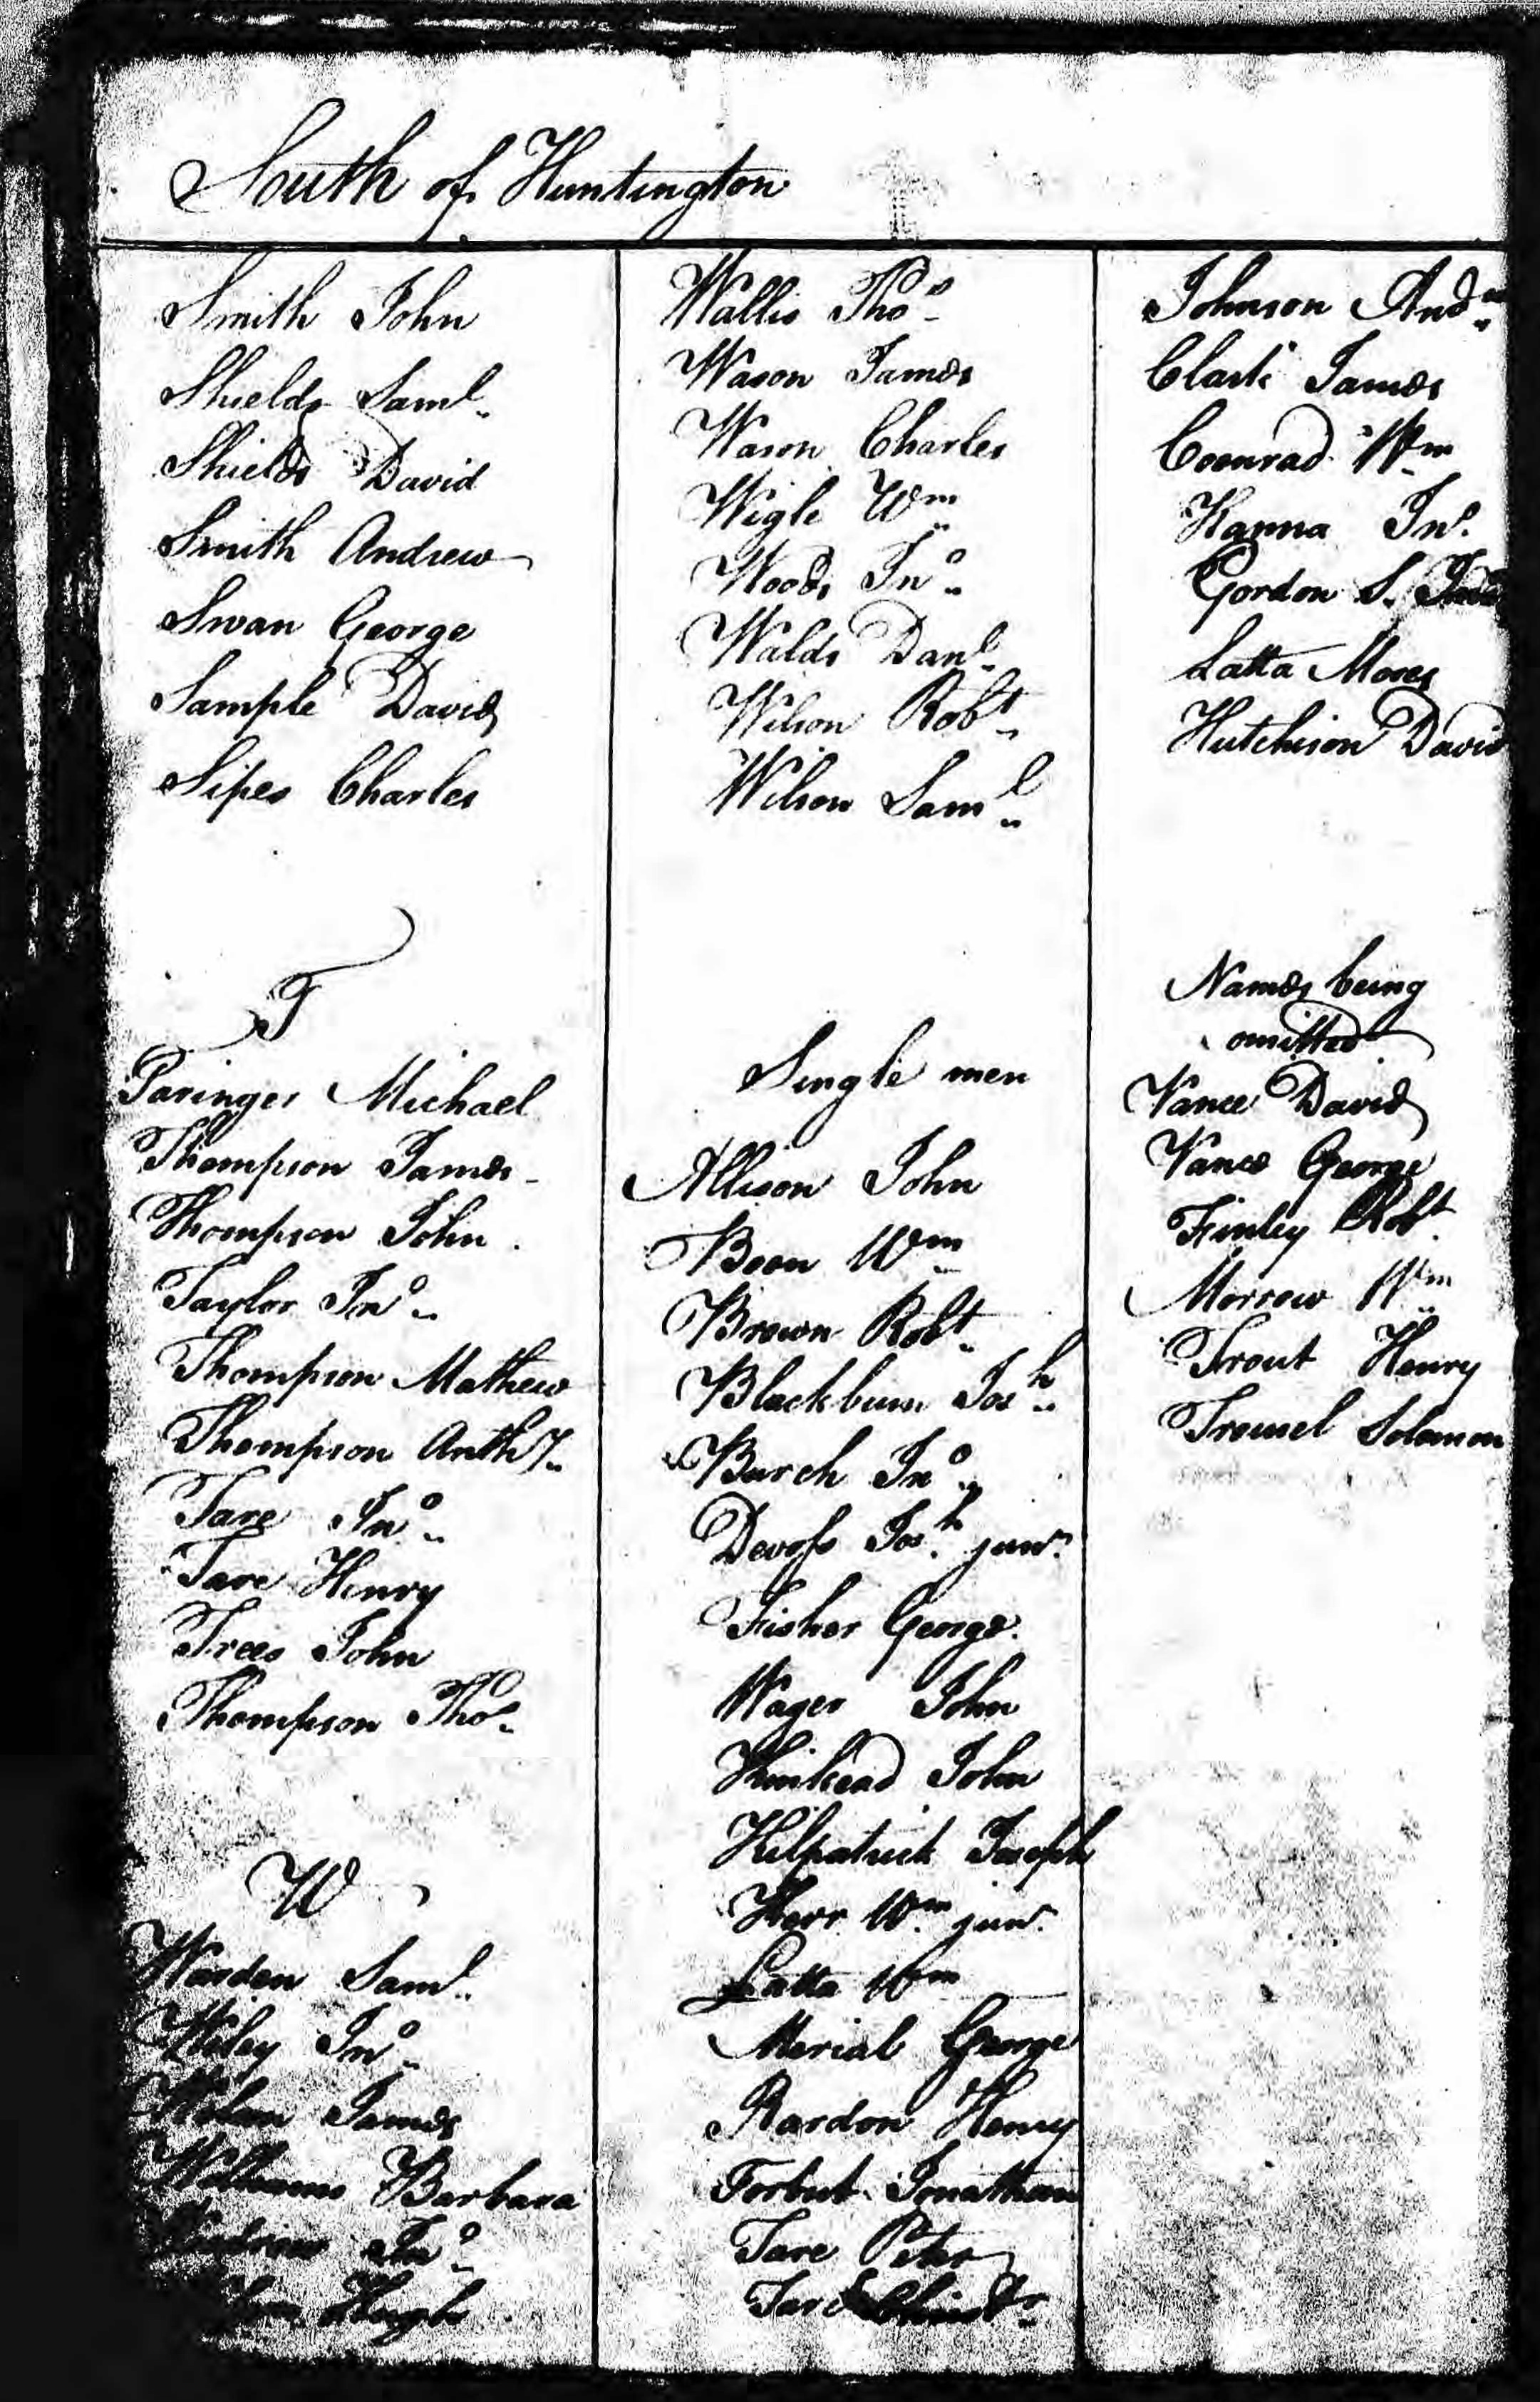 South of Huntington
Smith John
Shields Saml.
Shields David
Smith Andrew
Swan George
Sample David
Sipes Charles
T
Paringer Michael
Thompson James
Thompson John
Taylor Jno.
Thompson Mathew
Thompson Anthy.
Tare Jno.
Tare Henry
Trees John
Thompson Thos.
W
Warden Saml.
Wiley Jno.
James
Williams Barbara
Jno.
Hugh
Wallis Thos.
Wason James
Wason Charles
Wigle Wm
Woods Jno.
Walds Danl.
Wilson Robt.
Wilson Saml.
Single men
Allison John
Boon Wm
Brown Robt.
Blackburn Josh.
Burch Jno.
Devoss Josh. junr.
Fisher George
Wager John
Kinkead John
Kilpatrick Joseph
Kerr Wm. junr.
Latta Wm
Merial George
Rardon Henry
Torbut Jonathan
Tare Peter
Tare
Johnson Andw.
Clark James
Coonrad Wm
Hanna Jno.
Gordon S.
Latta Moses
Hutchison David
Names being
omitted
Vance David
Vance George
Finley Robt.
Morrow Wm
Trout Henry
Tromel Solomon